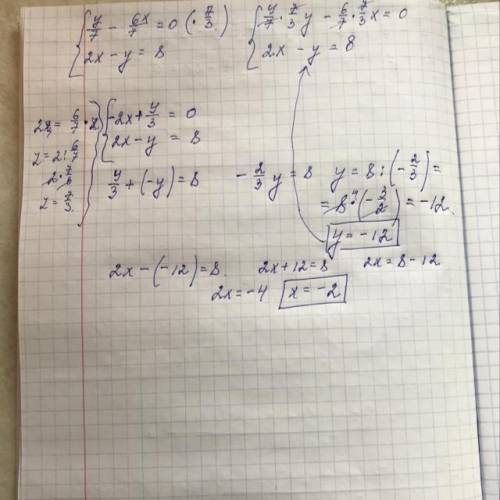 { y/7 - 6x/7 = 0 (· 7/3)
2x - y = 8
{ y/7 · 7/3 y - 6/7 · 7/3 x = 0
2x - y = 8
z = 2 : 6/7
2 · 7/6
z = 7/3
{ -2x + y/3 = 0
2x - y = 8
y/3 + (-y) = 8
- 2/3 y = 8
y = 8 : (- 2/3) =
= 8⁴ · (- 3/2) = -12
y = -12
2x - (-12) = 8
2x + 12 = 8
2x = 8 - 12
2x = -4
x = -2